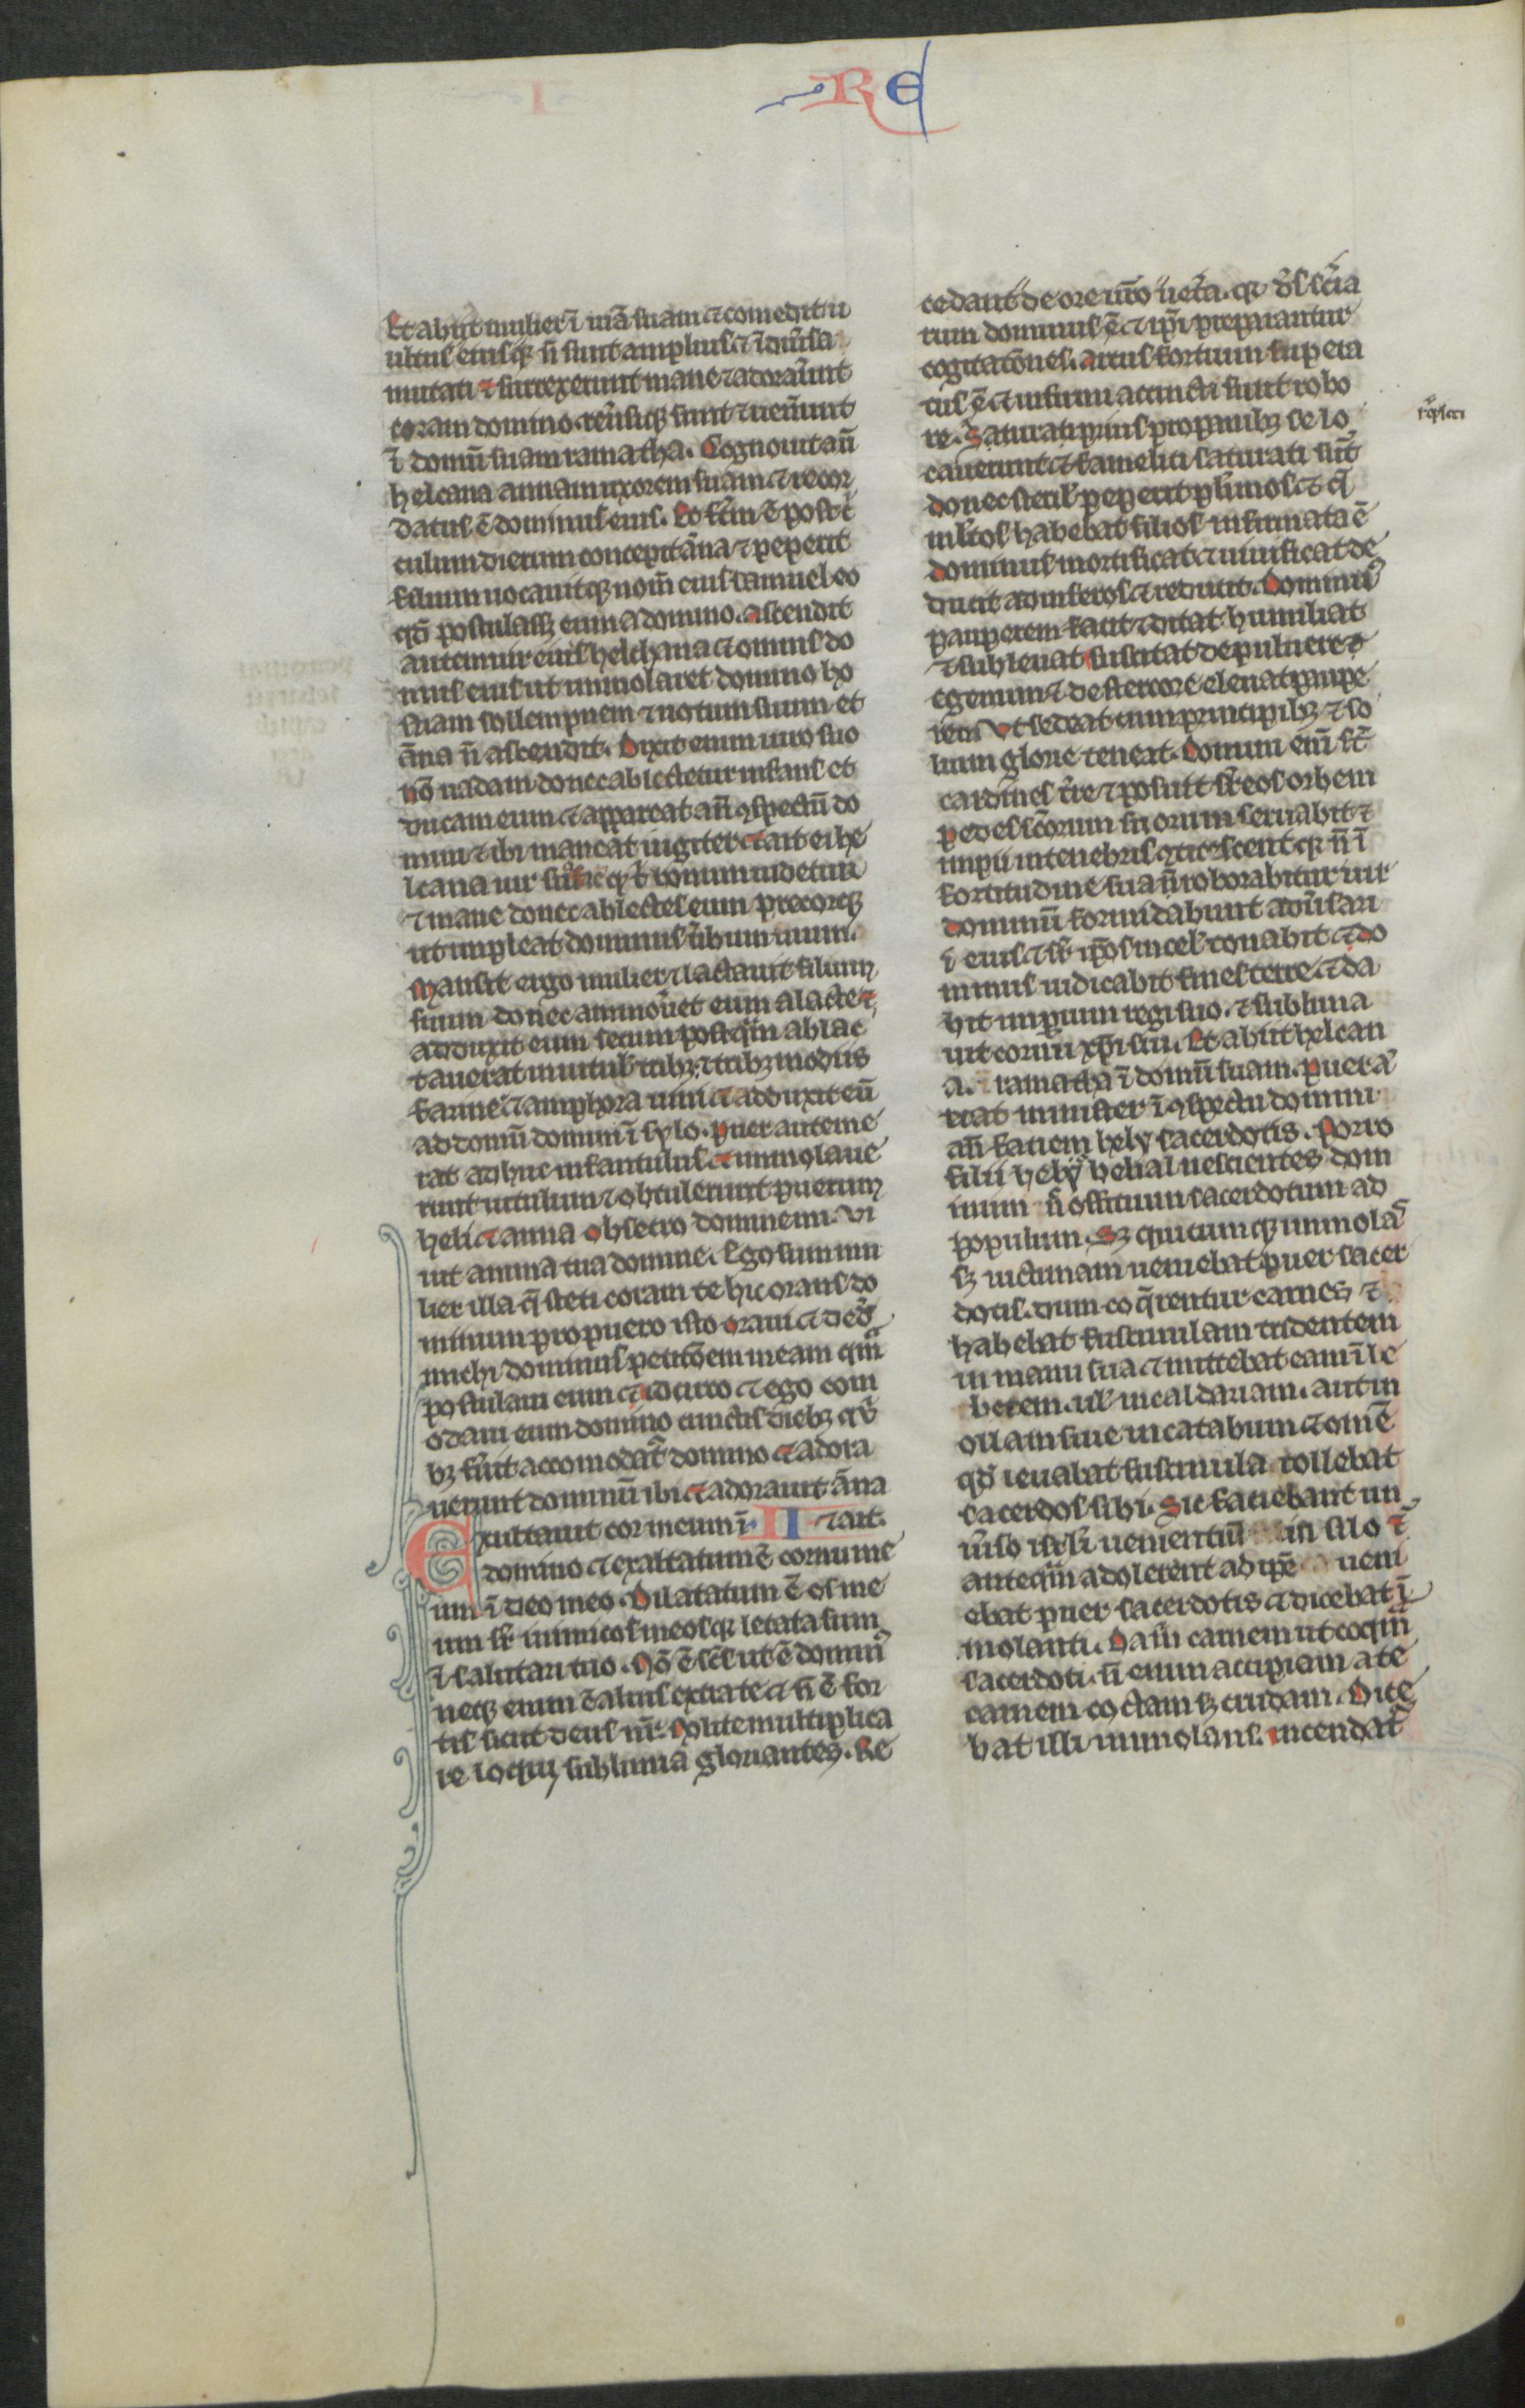 RE
Et abiit mulier ī uiā suam ⁊ comedit u
ultusq; eius ñ sunt amplius ⁊ ī diu̾sa
mutati ⁊ surrexerunt mane ⁊ adorau̾unt
coram domino. reu̾siq; sunt ⁊ uen̾unt
ī domū suam ramatha. Cognouit aū
helcana annam uxorem suam ⁊ recor
datus ē dominus eius. Et fc̄m ē post cͥ
culum dierum concepit āna ⁊ peperit
filium uocauitq; nom̄ eius samuel eo
qd̄ postulass; eum a domino. ascendit
autem uir eius helchana ⁊ omnis do
mus eius ut immolaret domino ho
stiam sollempnem ⁊ uotum suum et
āna ñ ascendit. Dixit enim uiro suo
nō uadam donec ablactetur infans et
ducam eum ⁊ appareat añ ꝯspectū do
mini ⁊ ibi maneat iugiter ⁊ ait ei he
lcana uir suus fac qd̾ bonum uidetur
⁊ mane donec ablactes eum precorq;
ut impleat dominus ūbum suum.
Mansit ergo mulier ⁊ lactauit filium
suum donec ammou̾et eum a lacte ⁊
adduxit eum secum postq̄m ablac
tauerat in uitul̾ trib; ⁊ trib; modiis
farine ⁊ amphora uini ⁊ adduxit eū
ad domū domini ī sylo. puer autem e
rat adhuc infantulus ⁊ immolaue
runt uitulum ⁊ obtulerunt puerum
heli ⁊ anna obsecro domine mi. Vi
uit anima tua domine. Ego sum mu
lier illa q̄ steti coram te hic orans do
minum pro puero isto oraui ⁊ ded̾
michi dominus petitōem meam qm̄
postulaui eum ⁊ idcirco ⁊ ego com
odaui eum domino cunctis dieb; qͥ
b; fu̾it accomodat̾ domino ⁊ adora
uerunt dominū ibi ⁊ adorauit āna
Exultauit cor meum ī II ⁊ ait.
domino ⁊ exaltatum ē cornu me
um ī deo meo. Dilatatum ē os me
um sr̄ inimicos meos q̄ letata sum
ī salutari tuo. Nō ē sc̄s ut ē domin̾
neq; enim ē alius extra te ⁊ ñ ē for
tis sicut deus nr̄. Nolite multiplica
re loqui sublimia gloriantes. Re
cedant de ore uro uet̾a. qꝛ ds̄ scīa
rum dominus ē ⁊ ip̄i preparantur
cogitatōnes. arcus fortium supera
tus ē ⁊ infirmi accincti sunt robo
re. Saturati prius pro panib; se lo
cauerunt ⁊ famelici saturati sūt
donec steril̾ peperit pl̾imos ⁊ q̄
ml̾tos habebat filios infirmata ē
dominus mortificat ⁊ uiuificat de
ducit ad inferos ⁊ reducit. Dominus
pauperem facit ⁊ ditat humiliat
⁊ subleuat suscitat de puluere
egenum ⁊ de stercore eleuat paupe
rem Vt sedeat cum principib; ⁊ so
lium glorie teneat. Domini eni st̄
cardines tre ⁊ posuit sr̄ eos orbem
pedes sc̄orum suorum seruabit ⁊
impii in tenebris ꝯticescent qꝛ ñ ī
fortitudine sua roborabitur uir
dominū formidabunt adu̾sari
i eius ⁊ sr̄ ipsos in cel̾ tonabit ⁊ do
minus iudicabit fines terre ⁊ da
bit imperium regi suo. ⁊ sublima
uit cornu xp̄i sui. Et abiit helcan
a. ramatha ī domū suam. puer a̾
erat minister ī ꝯspectu domini
añ faciem hely sacerdotis. Porro
filii hely belial nescientes dom
inum ñ officium sacerdotum ad
populum. S; quicumq; immola̾
s; uictimam ueniebat puer sacer
dotis. dum coq̄rentur carnes ⁊
habebat fuscinulam tridentem
in manu sua ⁊ mittebat eam ī le
betem. ul̾ in caldariam. aut in
ollam siue in cacabum ⁊ om̄e
qd̾ leuabat fuscinula tollebat
sacerdos sibi. Sic faciebant un
iu̾so isrl̾i uenientiū in silo ⁊
anteq̄m adolerent adipē ueni
ebat puer sacerdotis ⁊ dicebat ī
molanti. Da m̄ carnem ut coqm̄
sacerdoti. ñ enim accipiam a te
carnem coctam s; crudam. Dice
bat illi immolans. incendat̾